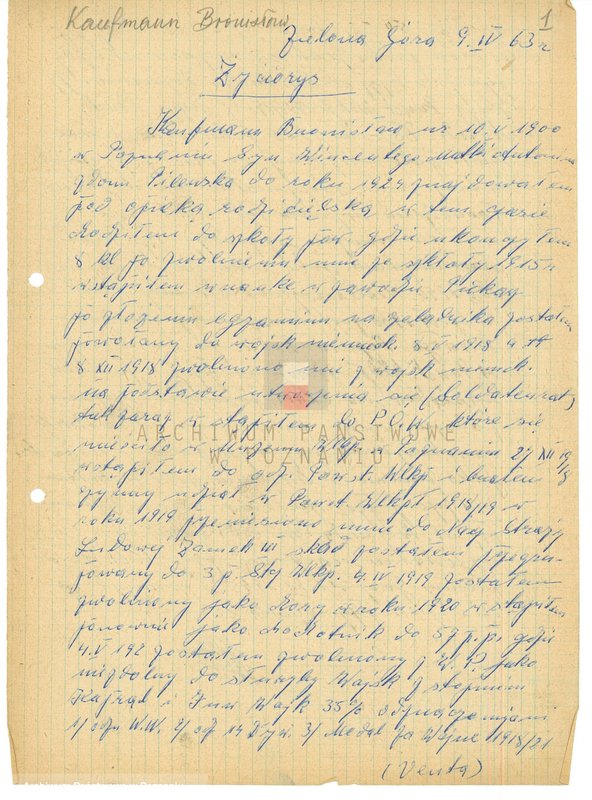 Kaufmann Bronisław
1
Zielona Góra 9. IV 63 r
Życiorys
Kaufmann Bronisław ur 10. V. 1900
w Poznaniu Syn Wincentego Matki Antonina
z domu Pilewska do roku 1929 znajdowałem
pod opieką rodzicielską w tem czasie
chodziłem do szkoły pow. gdzie ukończyłem
8 kl po zwolnieniu mnie ze szkłoty 1915 r
wstąpiłem w naukę w zawodzie Piekarz
po złożeniu egzaminu na czeladnika zostałem
powołany do wojsk niemieck. 8. V 1918 a
8 XII 1918 zwolniono mnie z wojsk niemieck.
na podstawie utworzenia się (Soldatenrat)
zaraz wstąpiłem do P.O.W. które się
mieściło w Muzeum Wlkp w Poznaniu 27 XII 19/18
wstąpiłem do Powst. Wlkp. i brałem
czynny udział w Powst Wlkp. 1918/19 w
roku 1919 przeniesiono mnie do Straży
Ludowej Zamek III skąd zostałem
do 3 p. Wlkp. 4. IV 1919 zostałem
zwolniony jako chory w roku 1920 wstąpiłem
ponownie jako ochotnik do 57 p. p. gdzie
4. V 192 zostałem zwolniony z W. P. jako
niezdolny do służby Wojsk z stopniem
Kapral i Inw Wojk 35% odznaczeniami
1/ W.W. 2/ 14 Dyw. 3/ Medal Za Wojnę 1918/21
(Verta)
ARCHIWUM PAŃSTWOWE
W POZNANIU